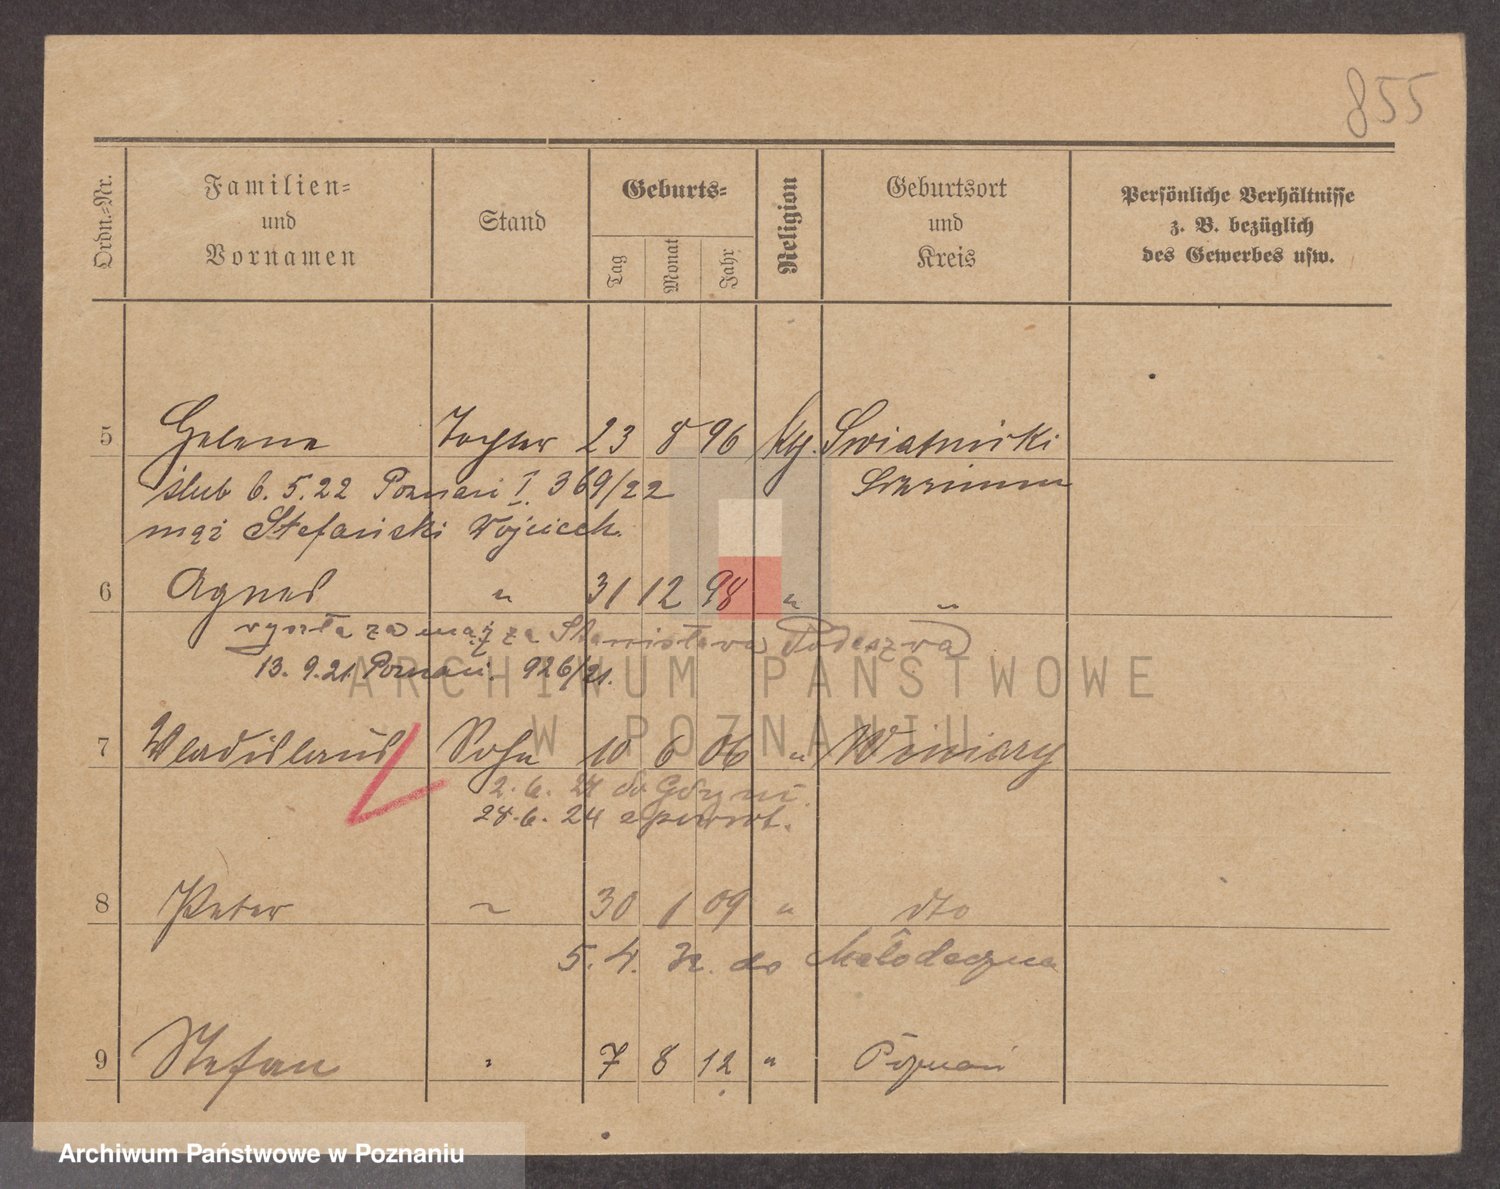 855
Ordn.-Nr.
Familien-
und
Vornamen
Stand
Geburts-
Tag
Monat
Jahr
Religion
Geburtsort
und
Kreis
Persönliche Verhältnisse
z. B. bezüglich
des Gewerbes usw.
5 Helene Tochter 23 8 96 Swiątniki
ślub 6.5.22 Poznań I. 369/22 Schrimm
mąż Stefański Wojciech.
6 Agnes " 31 12 98 " "
wyszła za mąż za Stanisława Podeszwa
13.9.21. Poznań. 926/21.
7 Wladislaus Sohn 10 6 06 " Winiary
2.6.24 do Gdyni.
28.6.24 z powrot.
8 Peter ~ 30 1 09 " dto
5.4. do Mołodeczna
9 Stefan " 7 8 12 " Poznań
ARCHIWUM PAŃSTWOWE
W POZNANIU
Archiwum Państwowe w Poznaniu